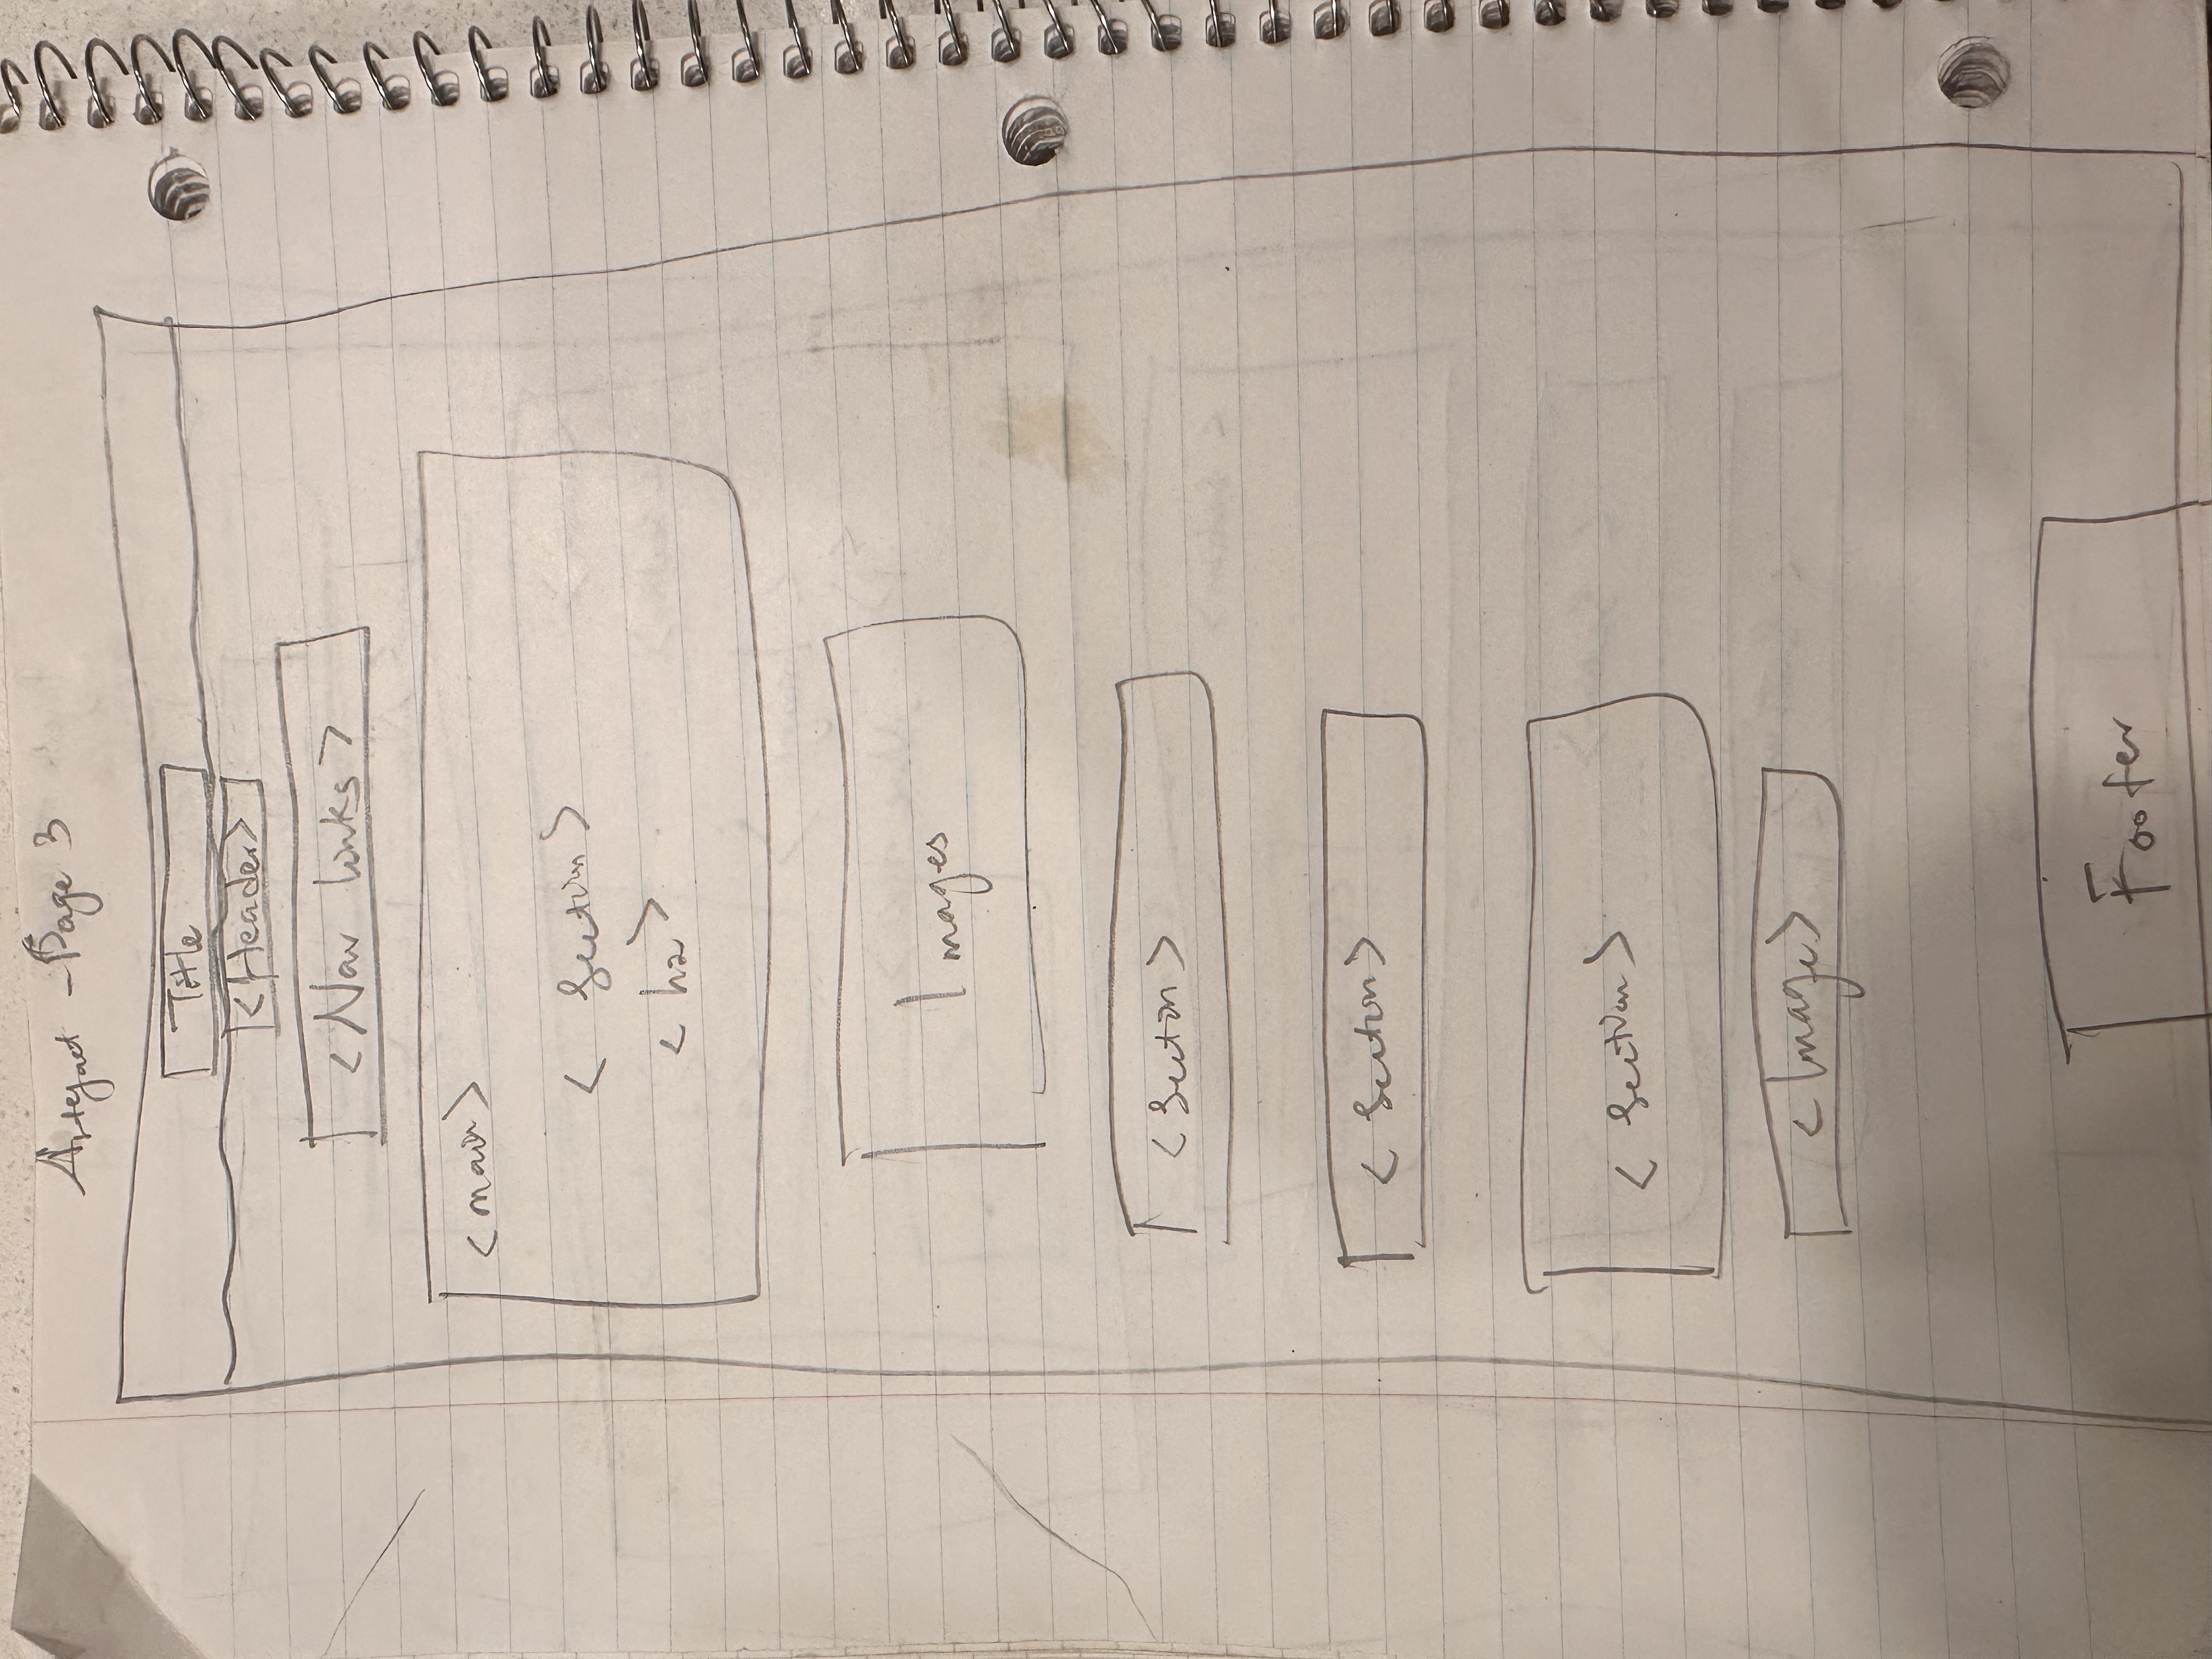 Artefact - Page 3
Title
<Header>
<Nav links>
<main>
<Section>
<h2>
Images
<Section>
<Section>
<Section>
<Image>
Footer